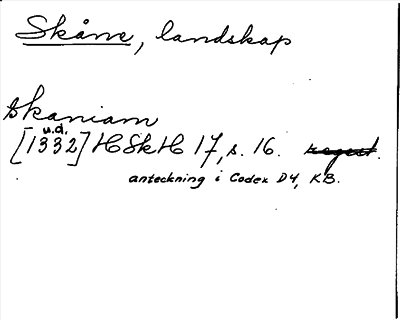 Skåne, landskap
Skaniam
u.d.
[1332] HSkH 17, s. 16. regest.
anteckning i Codex D4, KB.